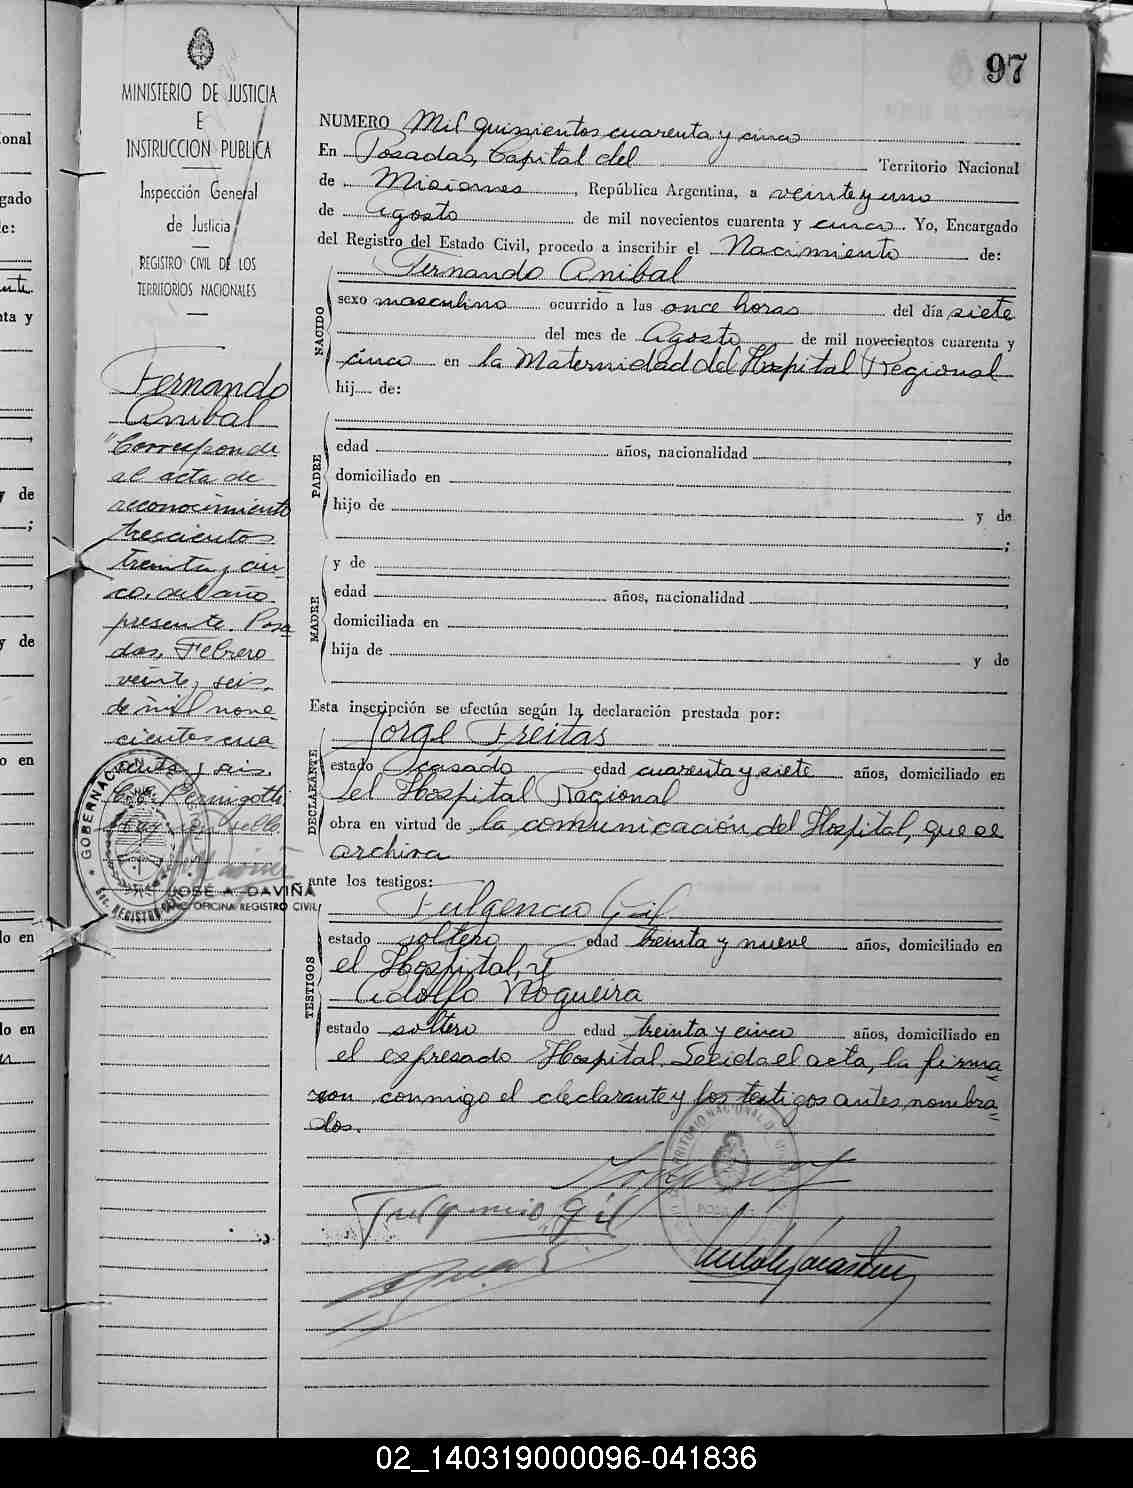 97
MINISTERIO DE JUSTICIA
E
INSTRUCCION PUBLICA
Inspección General
de Justicia
REGISTRO CIVIL DE LOS
TERRITORIOS NACIONALES
Fernando
Anibal
"Corresponde
al acta de
reconocimiento
trescientos
treinta y cin-
co, del año
presente. Posa-
das, Febrero
veinte y seis,
de mil nove-
cientos cua-
renta y seis.
JOSE A. DAVIÑA
OFICINA REGISTRO CIVIL
NUMERO Mil quinientos cuarenta y cinco
En Posadas, Capital del Territorio Nacional
de Misiones, República Argentina, a veinte y uno
de Agosto de mil novecientos cuarenta y cinco. Yo, Encargado
del Registro del Estado Civil, procedo a inscribir el Nacimiento de:
NACIDO
Fernando Anibal
sexo masculino ocurrido a las once horas del día siete
del mes de Agosto de mil novecientos cuarenta y
cinco en la Maternidad del Hospital Regional
hij de:
PADRE
edad años, nacionalidad ,
domiciliado en
hijo de y de
;
MADRE
y de
edad años, nacionalidad ,
domiciliada en
hija de y de
Esta inscripción se efectúa según la declaración prestada por:
DECLARANTE
Jorge Freitas
estado casado edad cuarenta y siete años, domiciliado en
el Hospital Regional
obra en virtud de la comunicación del Hospital, que se
archiva
ante los testigos:
TESTIGOS
Fulgencio Gil
estado soltero edad treinta y nueve años, domiciliado en
el Hospital, y
Adolfo Nogueira
estado soltero edad treinta y cinco años, domiciliado en
el expresado Hospital. Leida el acta, la firma-
ron conmigo el declarante y los testigos antes nombra-
dos.
Fulgencio Gil
02_140319000096-041836